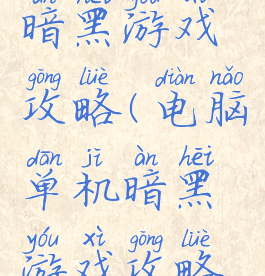 àn hēi yóu xì
暗黑游戏
gōng lüè diàn nǎo
攻略(电脑
dān jī àn hēi
单机暗黑
yóu xì gōng lüè
游戏攻略